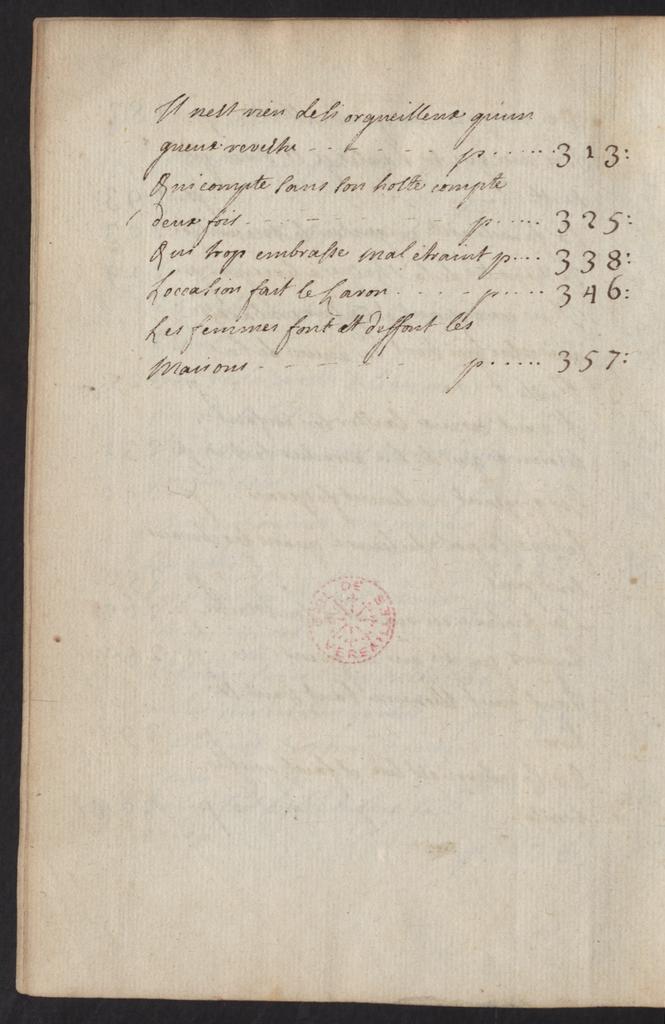 Il nest rien desi orgueilleux quiun
gueux revestu - - - - - p......313:
Qui compte sans son hoste compte
deux fois - - - - - - - p..... 325:
Qui trop embrasse mal étraint p... 338:
Loccasion fait le Laron - - - p..... 346:
Les femmes font et deffont les
maisons - - - - - p...... 357:
BIBL DE VERSAILLES